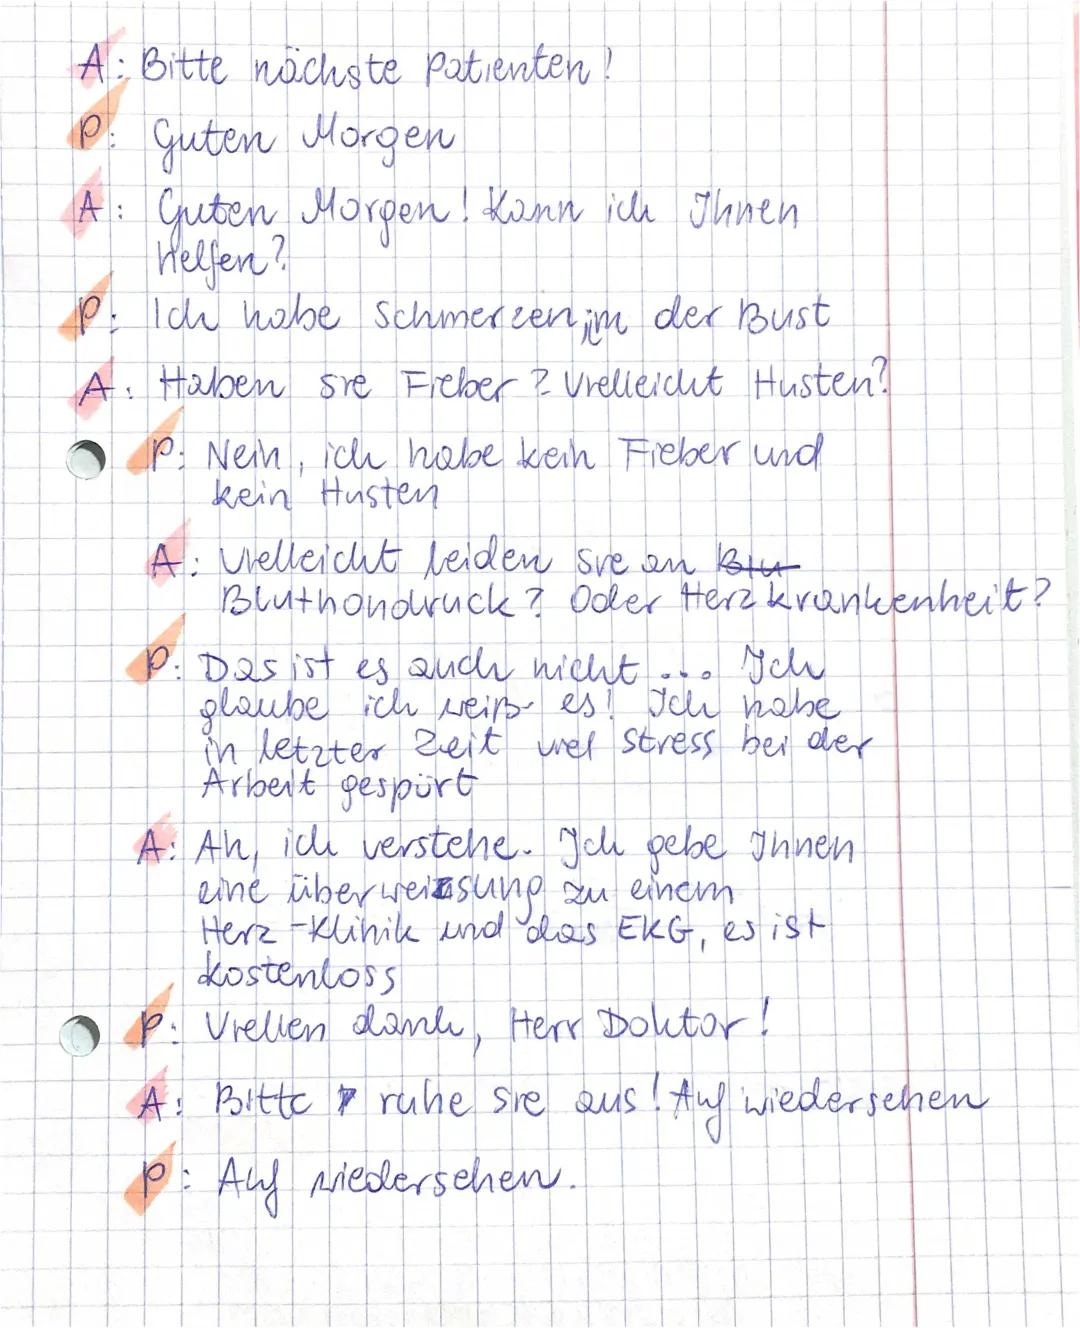 A: Bitte nächste Patienten!
P: Guten Morgen
A: Guten Morgen! Kann ich Ihnen
helfen?
P: Ich habe Schmerzen im der Bust
A: Haben sie Fieber? Vielleicht Husten?
P: Nein, ich habe kein Fieber und
kein Husten
A: Vielleicht leiden Sie an Blu
Bluthondruck? Oder Herzkrankenheit?
P: Das ist es auch nicht ... Ich
glaube ich weiß es! Ich habe
in letzter Zeit viel Stress bei der
Arbeit gespürt
A: Ah, ich verstehe. Ich gebe Ihnen
eine überweissung zu einem
Herz-Klinik und das EKG, es ist
kostenloss
P: Viellen dank, Herr Doktor!
A: Bitte ruhe sie aus! Auf wiedersehen
P: Auf wiedersehen.